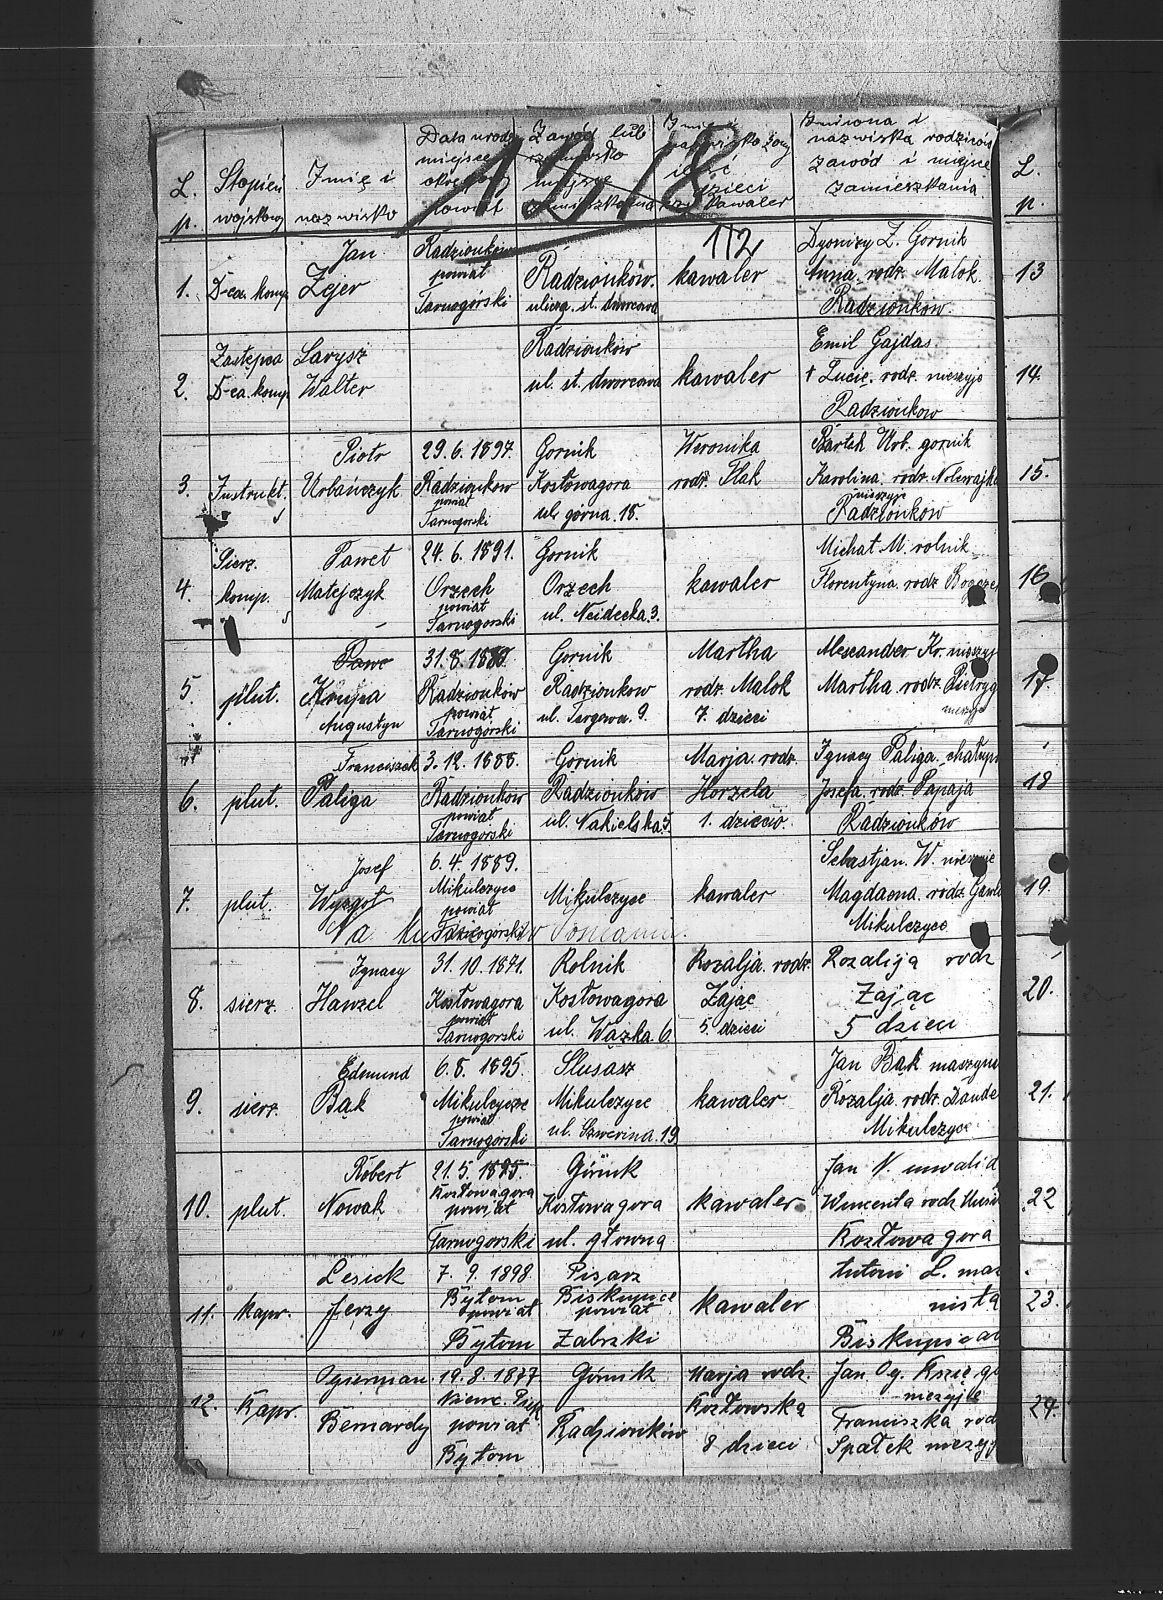 L. p.
Stopień wojskowy
Imię i nazwisko
Data urodz. miejsce powiat
Zawód lub miejsce zamieszkania
Imię i nazwisko żony ilość dzieci kawaler
Imiona i nazwiska rodziców zawód i miejsce zamieszkania
L. p.
1218
112
1. D-ca. komp. Jan Zejer
Radzionków powiat Tarnogórski
Radzionków. ulica. st. dworcowa
kawaler
Dyonizy Z. Gornik
Anna rodz. Malok.
Radzionkow.
13
2. Zastępca D-ca. komp. Larysz Walter
Radzionków
ul. st. dworcowa
kawaler
Emil Gajdas.
† Lucie. rodz. nieżyje
Radzionkow
14.
3. Instrukt. Piotr Urbańczyk
29.6.1897.
Radzionkow
powiat
Tarnogorski
Gornik
Kosłowagora
ul. górna. 18.
Weronika
rodz. Flak
Bartek Urb. gornik
Karolina. rodz.
nieżyje
Radzionkow
15.
4. Sierz. komp. Paweł Matejczyk
24.6.1891.
Orzech
powiat
Tarnogorski
Gornik
Orzech
ul. Neidecka 3.
kawaler
Michał M. rolnik
Florentyna. rodz
16
5. plut. Krupa
Augustyn
31.8.1889.
Radzionków
powiat
Tarnogórski
Gornik
Radzionkow
ul. Targowa. 9.
Martha
rodz. Malok
7. dzieci
Alexander Kr.
Martha rodz.
17
6. plut. Franciszek Paliga
3.12.1888.
Radzionkow
powiat
Tarnogórski
Górnik
Radzionkow
ul. Nakielska 5
Marja. rodz.
Horzela
1. dziecio.
Ignacy Paliga.
Josefa. rodz. Papaja
Radzionków
18
7. plut. Josef
6.4.1889.
Mikulczyce
powiat
Mikulczyce
kawaler
Sebastjan. W.
Magdalena. rodz.
Mikulczyce
19.
8. sierz. Ignacy Hanzel
31.10.1871.
Kosłowagora
powiat
Tarnogorski
Rolnik
Kosłowagora
ul. Wązka. 6.
Rozalja. rodz.
Zając
5. dzieci
Rozalija rodz
Zając
5 dzieci
20.
9. sierz. Edmund Bąk
6.8.1895.
Mikulczyce
powiat
Tarnogorski
Slusasz
Mikulczyce
ul. Szwerina. 19
kawaler
Jan Bąk
Rozalja rodz.
Mikulczyce
21.
10. plut. Robert Nowak
21.5.1895.
Kozłowagora
powiat
Tarnogorski
Górnik
Kosłowagora
ul. głowna
kawaler
Jan N. inwalid
Wincenta rodz
Kozłowagora
22
11. kapr. Lesick Jerzy
7.9.1898
Bytom
powiat
Bytom
Pisarz
Biskupice
powiat
Zabrski
kawaler
Antoni L.
Biskupice
23.
12. Kapr. Ogierman Bernardy
19.8.1877
powiat
Bytom
Górnik
Radzionków
Marja rodz.
Kozłowska
8 dzieci
Jan Og.
nieżyje
Franciszka rodz
Spałek
24.